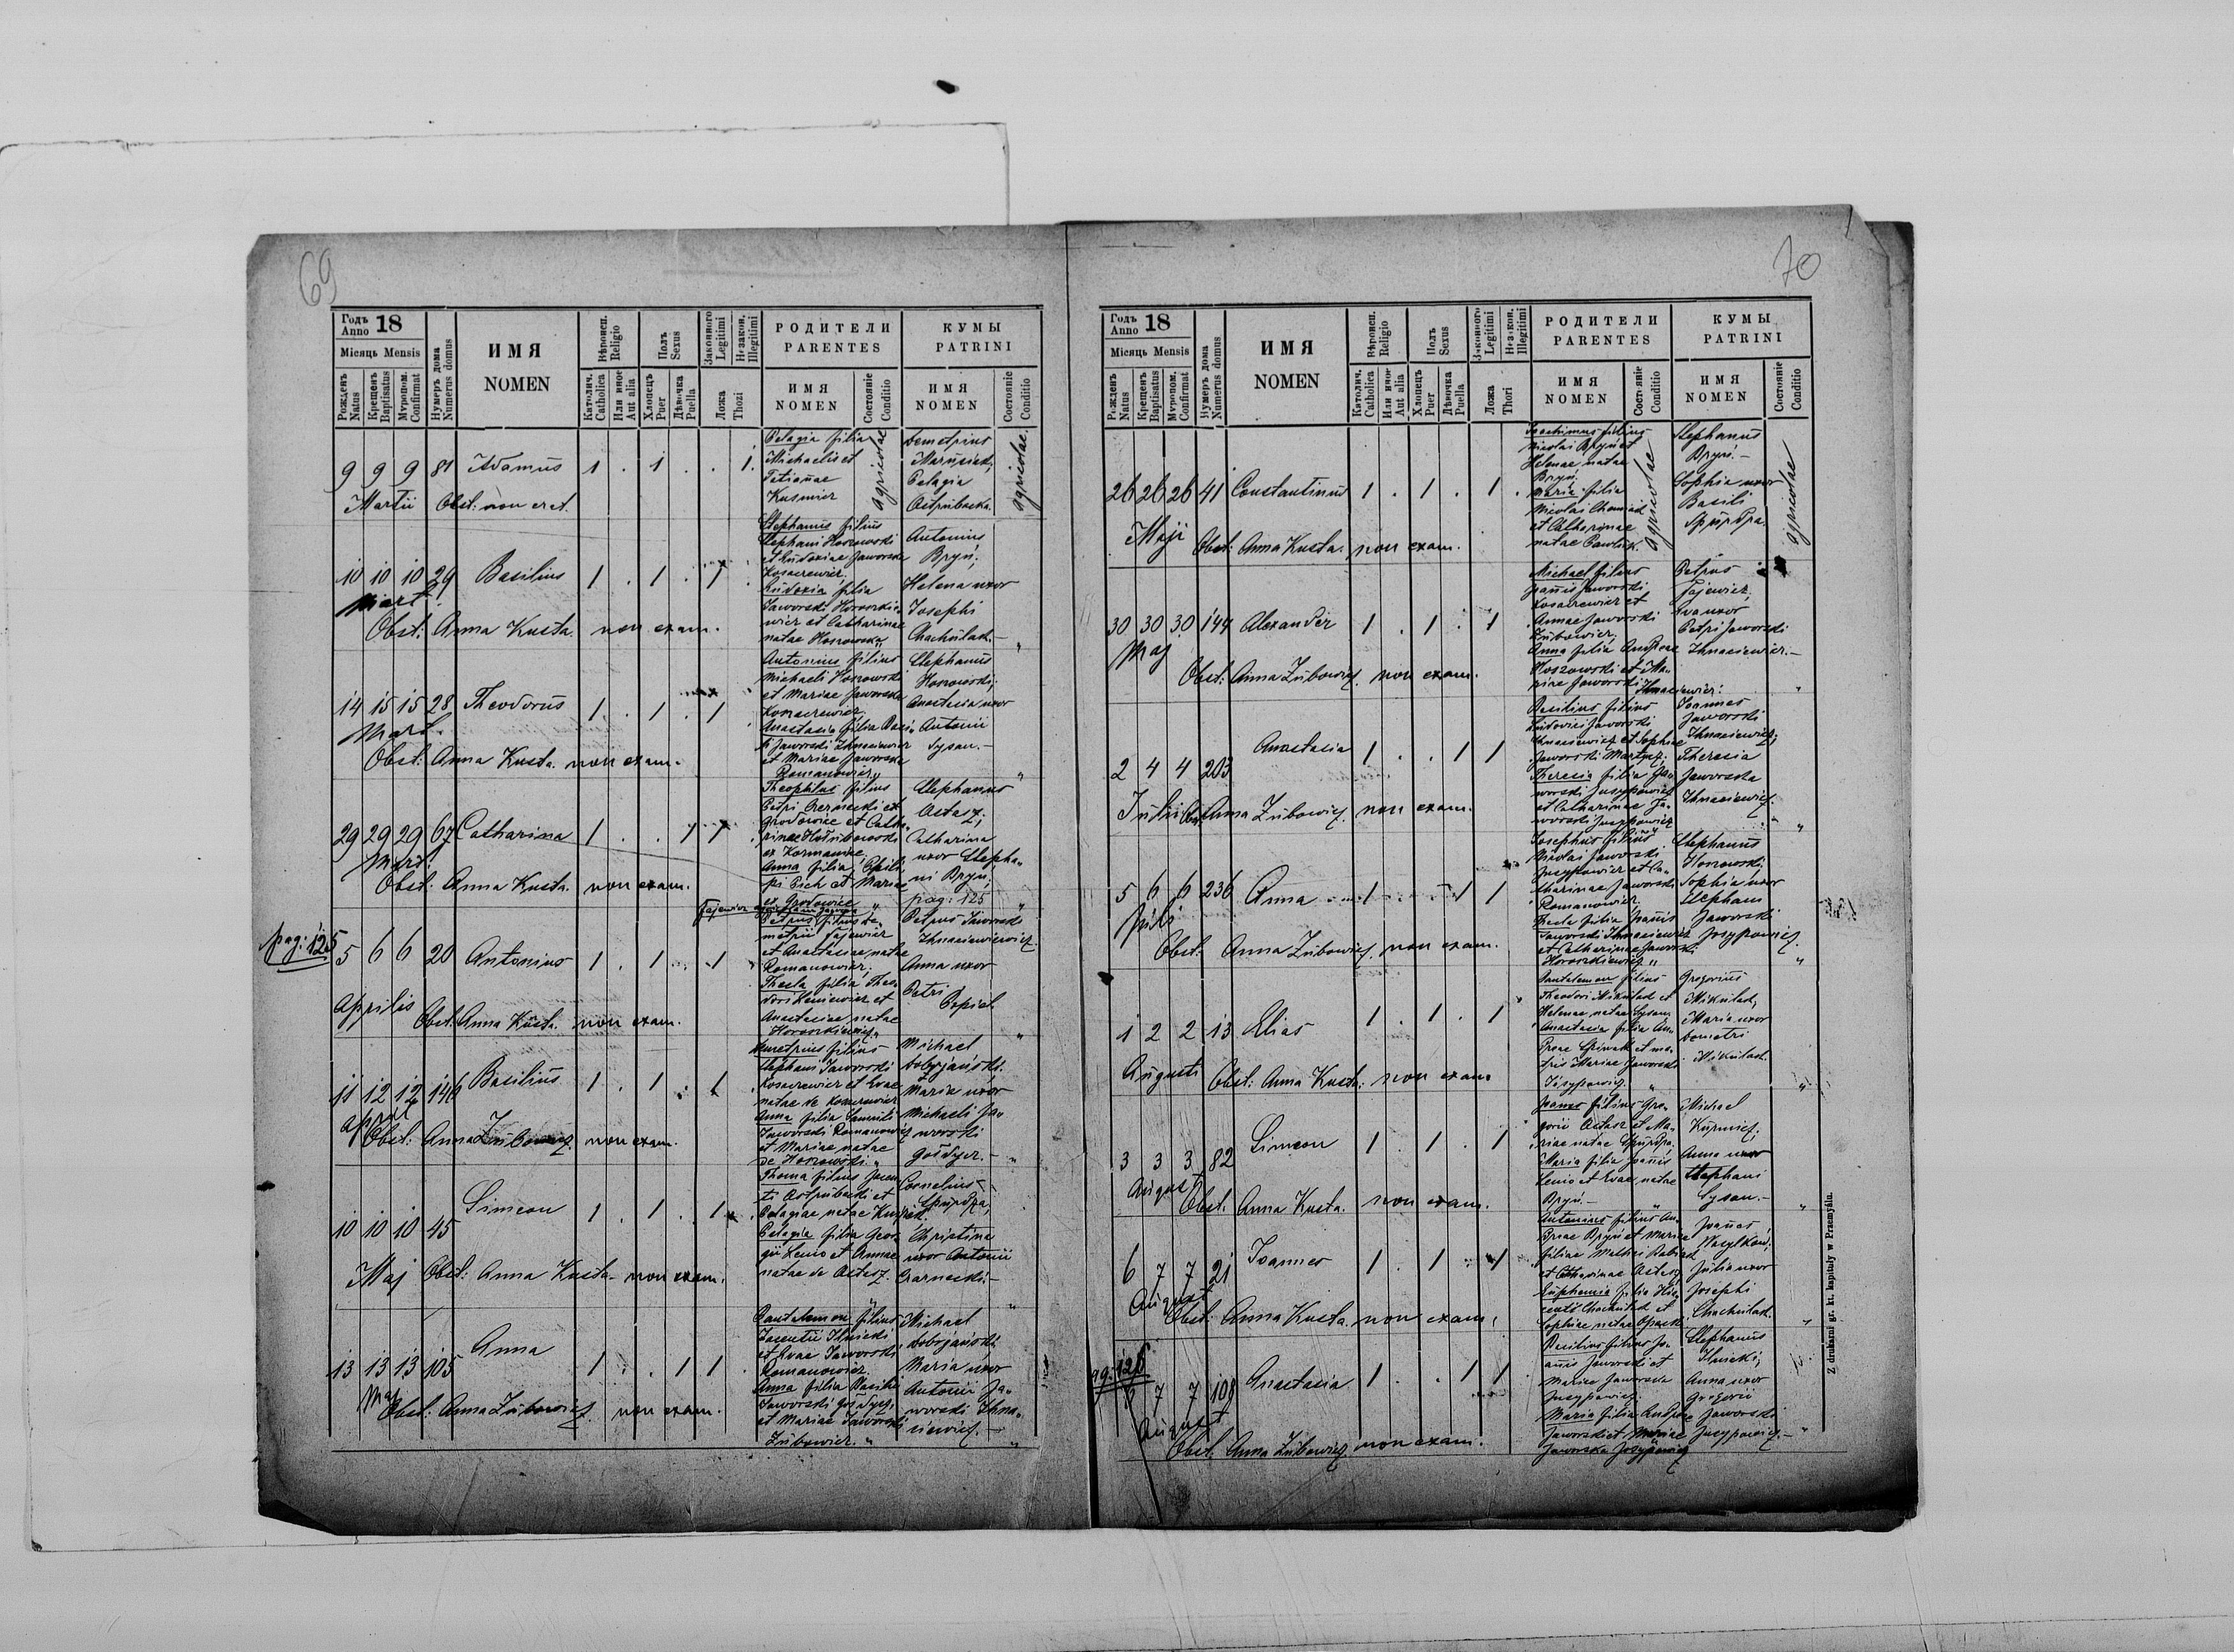 69
Годъ Anno 18
Місяць Mensis
Рожденъ Natus
Крещенъ Baptisatus
Мѵропом. Confirmat
Нумеръ дома Numerus domus
ИМЯ
NOMEN
Вѣроисп. Religio
Католич. Catholica
Или иное Aut alia
Полъ Sexus
Хлопець Puer
Дѣвочка Puella
Законного Legitimi
Незакон. Illegitimi
Ложа Thori
РОДИТЕЛИ
PARENTES
ИМЯ NOMEN
Состояніе Conditio
КУМЫ
PATRINI
ИМЯ NOMEN
Состояніе Conditio
9 9 9 81 Adamus 1 . 1 . . 1.
Martii Obst: non erat.
Pelagia filia
Michaelis et
Tatianae
Kusmier
agricolae
Demetrius
Marusiak,
Pelagia
agricolae.
10 10 10 29 Basilius 1 . 1 . 1
Mart.
Obst: Anna Kusta. non exam.
Stephanus filius
Stephani Hoszowski
et Eudoxiae Jaworska
Eudoxia filia
wicz et Catharinae
natae Hoszowska
Antonius
Bryń;
Helena uxor
Josephi
14 15 15 28 Theodorus 1 . 1 . 1
Mart.
Obst: Anna Kusta. non exam.
Antonius filius
Michaeli Hoszowski
et Mariae Jaworska
Anastasia filia Basi
li Jaworski Ihnasiewicz
et Mariae Jaworska
Romanowicz
Stephanus
Hoszowski;
Anastasia uxor
Antonii
Sysan.–
29 29 29 67 Catharina 1 . . 1 1
Mart.
Obst: Anna Kusta. non exam.
Theophilus filius
Petri Czernecki ex
Grodowice et Catha
ex Kormanice,
Anna filia
pi Pich et Mariae
ex Grodowice
Stephanus
Astasz;
Catharina
uxor Stepha
ni Bryn;
pag: 125
pag: 125
5 6 6 20 Antonius 1 . 1 . 1
Aprilis Obst. Anna Kusta. non exam.
Petrus filius De
metrii Fajewicz
et Anastasiae natae
Romanowicz.
Thecla filia Theo
dori Leniewicz et
Anastasiae natae
Petrus Jaworski
Anna uxor
Petri
Popiel
11 12 12 146 Basilius 1 . 1 . 1
April
Obst: Anna Zubowicz. non exam.
Demetrius filius
Stephani Jaworski
Kosacrewicz et Evae
Anna filia Samuelis
Jaworski Romanowicz
et Mariae natae
de Hoszowski
Michael
Dobrjański.
Maria uxor
Michaeli Ja
worski
10 10 10 45 Simeon 1 . 1 . 1
Maj Obst: Anna Kusta. non exam.
Thoma filius
Pelagiae natae
Pelagia filia Geor
gii Lenio et Annae
natae de Astasz.
Cornelius
Spurdza,
Christina
uxor Antonii
Czarnecki.–
13 13 13 105 Anna 1 . . 1 1
Maj
Obst: Anna Zubowicz. non exam.
Pantelemon filius
Jacentii Ilnicki
et Evae Jaworski
Romanowicz
Anna filia Basilii
et Mariae Jaworski
Zubowicz.
Michael
Dobrjański
Maria uxor
Antonii Ja
worski Ihna
siewicz.
70
Годъ Anno 18
Місяць Mensis
Рожденъ Natus
Крещенъ Baptisatus
Мѵропом. Confirmat
Нумеръ дома Numerus domus
ИМЯ
NOMEN
Вѣроисп. Religio
Католич. Catholica
Или иное Aut alia
Полъ Sexus
Хлопець Puer
Дѣвочка Puella
Законного Legitimi
Незакон. Illegitimi
Ложа Thori
РОДИТЕЛИ
PARENTES
ИМЯ NOMEN
Состояніе Conditio
КУМЫ
PATRINI
ИМЯ NOMEN
Состояніе Conditio
26 26 26 41 Constantinus 1 . 1 . 1 .
Maji Obst: Anna Kusta. non exam.
Joachimus filius
Nicolai Bryn et
Helenae natae
Bryn.
Maria filia
et Catharinae
natae Pawlik.
agricolae
Stephanus
Bryń.–
Sophia uxor
Basili
Spurdza.
agricolae
30 30 30 144 Alexander 1 . 1 . 1
Maj
Obst: Anna Zubowicz. non exam.
Michael filius
Joannis Jaworski
Kosacrewicz et
Annae Jaworski
Zubowicz,
Anna filia Andreae
Hoszowski et Ma
riae Jaworski
Ihnasiewicz.
Petrus
Fajewicz,
Eva uxor
Petri Jaworski
Ihnasiewicz.–
2 4 4 203 Anastasia 1 . . 1 1
Julii Obst: Anna Zubowicz. non exam.
Basilius filius
Ludovici Jaworski
Ihnasiewicz et Sophiae
Jaworski Martycz.
Theresia filia Ja
worski Jusypowicz
et Catharinae Ja
worski Jusypowicz
Joannes
Jaworski
Ihnasiewicz;
Theresia
Jaworska
Ihnasiewicz.
5 6 6 236 Anna 1 . . 1 1
Juli
Obst. Anna Zubowicz. non exam.
Josephus filius
Nicolai Jaworski
Jusypowicz et Ca
tharinae Jaworski
Romanowicz.
Thecla filia Joannis
Jaworski Ihnasiewicz
et Catharinae Jaworski
Stephanus
Hoszowski,
Sophia uxor
Stephani
Jaworski
Josypowicz.
1 2 2 13 Elias 1 . 1 . 1
Augusti Obst: Anna Kusta: non exam
Pantelemon filius
Theodori Mikulad et
Helenae natae Sysan.
Anastasia filia An
dreae Spiwak et ma
tris Mariae Jaworski
Gregorius
Mikulad,
Maria uxor
Demetri
Mikulad.
3 3 3 82 Simeon 1 . 1 . 1
August
Obst. Anna Kusta. non exam.
Joannes filius Gre
gorii Astasz et Ma
riae natae Spurdza.
Maria filia Joannis
Lenio et Evae natae
Bryń.–
Michael
Anna uxor
Stephani
Sysan.–
6 7 7 21 Joannes 1 . 1 . 1
August
Obst: Anna Kusta. non exam.
Antonius filius An
dreae Bryn et Mariae
filiae Mathei
et Catharinae Astasz
Euphemia filia
Sophiae natae
Joannes
Wasylkow;
Julia uxor
Josephi
pag: 125
6 7 7 108 Anastasia 1 . . 1 1
August
Obst. Anna Zubowicz non exam.
Basilius filius Jo
annis Jaworski et
Mariae Jaworska
Jusypowicz.
Maria filia Andreae
Jaworski et Mariae
Jaworska Josypowicz
Stephanus
Ilnicki,
Anna uxor
Gregorii
Jaworski
Jusypowicz.–
Z drukarni gr. kt. kapituły w Przemyślu.